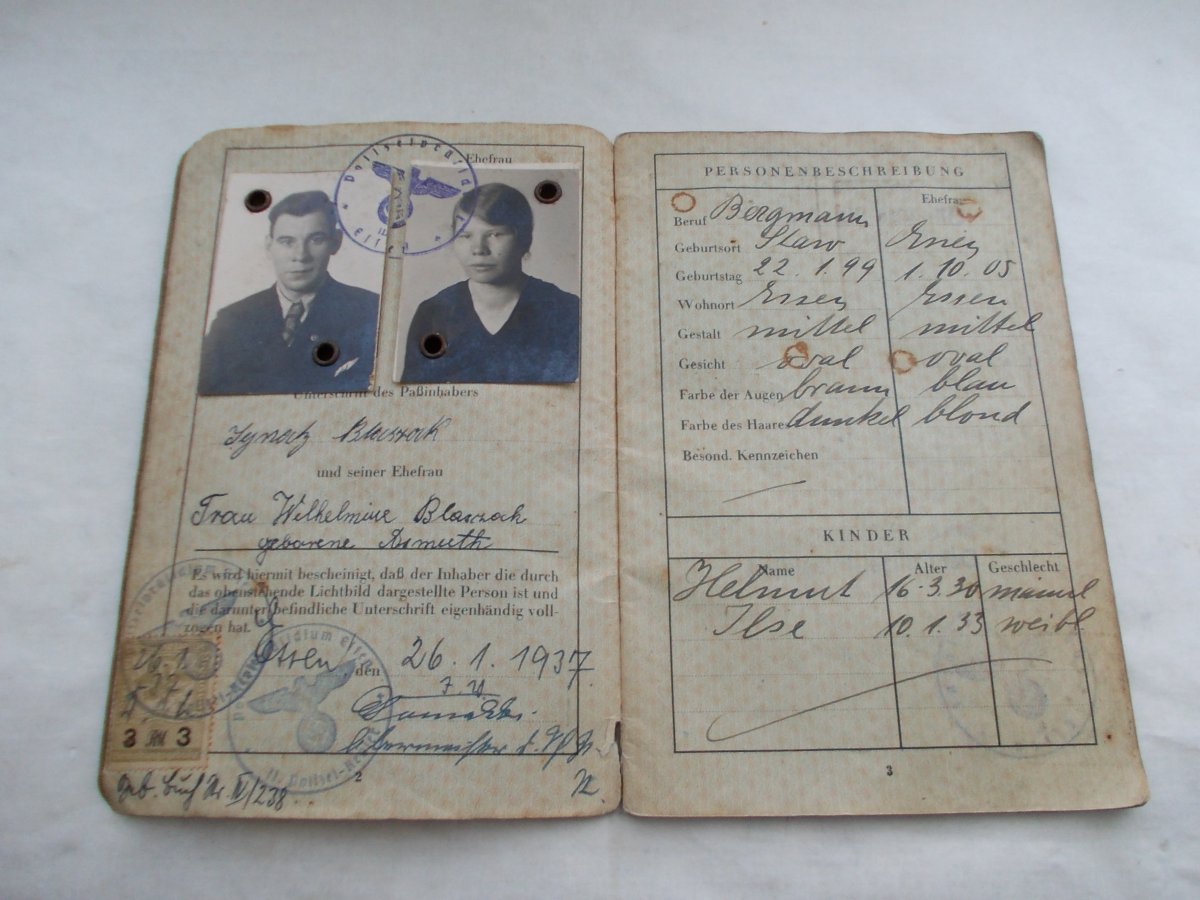 Ehefrau
Polizeipräsidium
Essen
Unterschrift des Paßinhabers
Ignatz Blaszak
und seiner Ehefrau
Frau Wilhelmine Blaszak
geborene Asmuth
Es wird hiermit bescheinigt, daß der Inhaber die durch
das obenstehende Lichtbild dargestellte Person ist und
die darunter befindliche Unterschrift eigenhändig voll-
zogen hat.
Essen, den 26.1.1937.
26.1.
3 RM 3
Geb. Buch Nr. IV/238.
2
PERSONENBESCHREIBUNG
Ehefrau
Beruf Bergmann
Geburtsort Slaw Essen
Geburtstag 22.1.99 1.10.05
Wohnort Essen Essen
Gestalt mittel mittel
Gesicht oval oval
Farbe der Augen braun blau
Farbe des Haares dunkel blond
Besond. Kennzeichen
KINDER
Name Alter Geschlecht
Helmut 16.3.30 männl
Ilse 10.1.33 weibl.
3